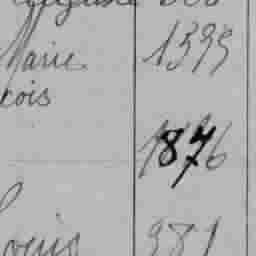 Marie 1399
çois
1876
Louis 381